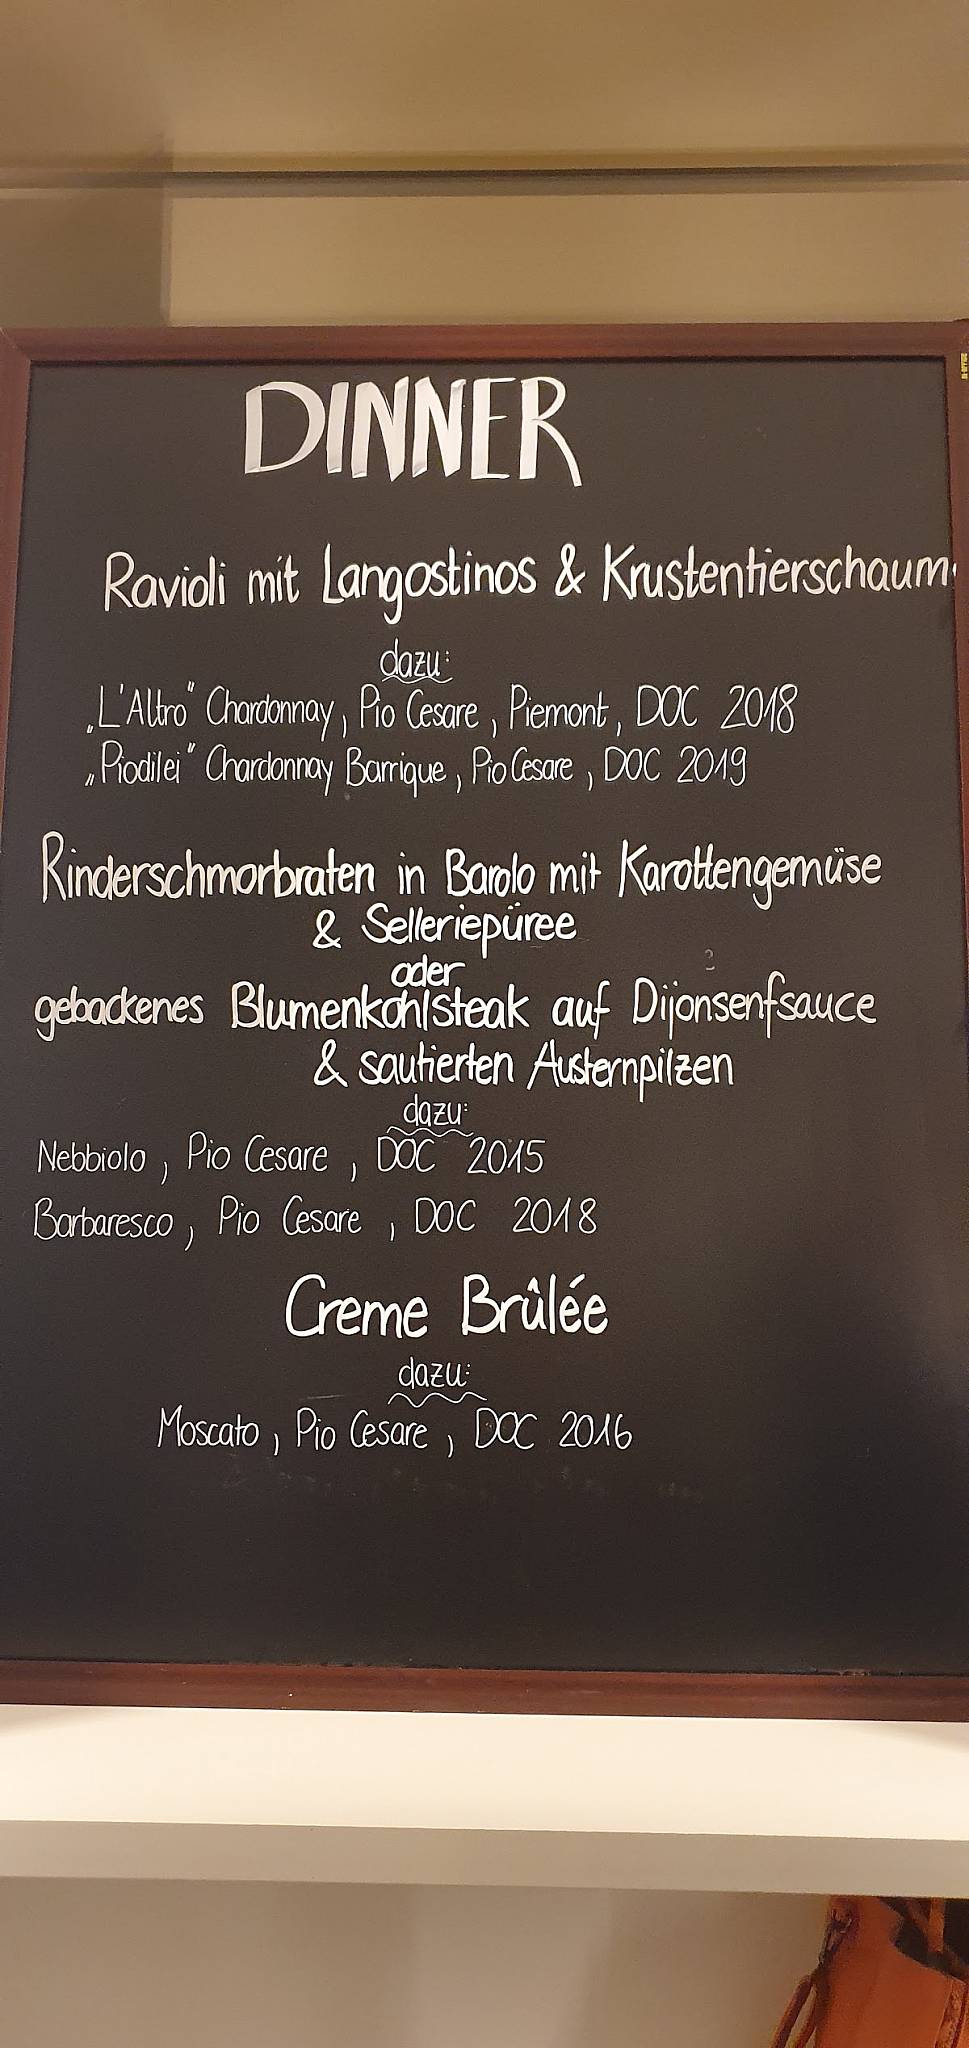 DINNER
Ravioli mit Langostinos & Krustentierschaum
dazu:
„L'Altro" Chardonnay, Pio Cesare, Piemont, DOC 2018
„Piodilei" Chardonnay Barrique, Pio Cesare, DOC 2019
Rinderschmorbraten in Barolo mit Karottengemüse
& Selleriepüree
oder
gebackenes Blumenkohlsteak auf Dijonsenfsauce
& sautierten Austernpilzen
dazu:
Nebbiolo, Pio Cesare, DOC 2015
Barbaresco, Pio Cesare, DOC 2018
Creme Brûlée
dazu:
Moscato, Pio Cesare, DOC 2016